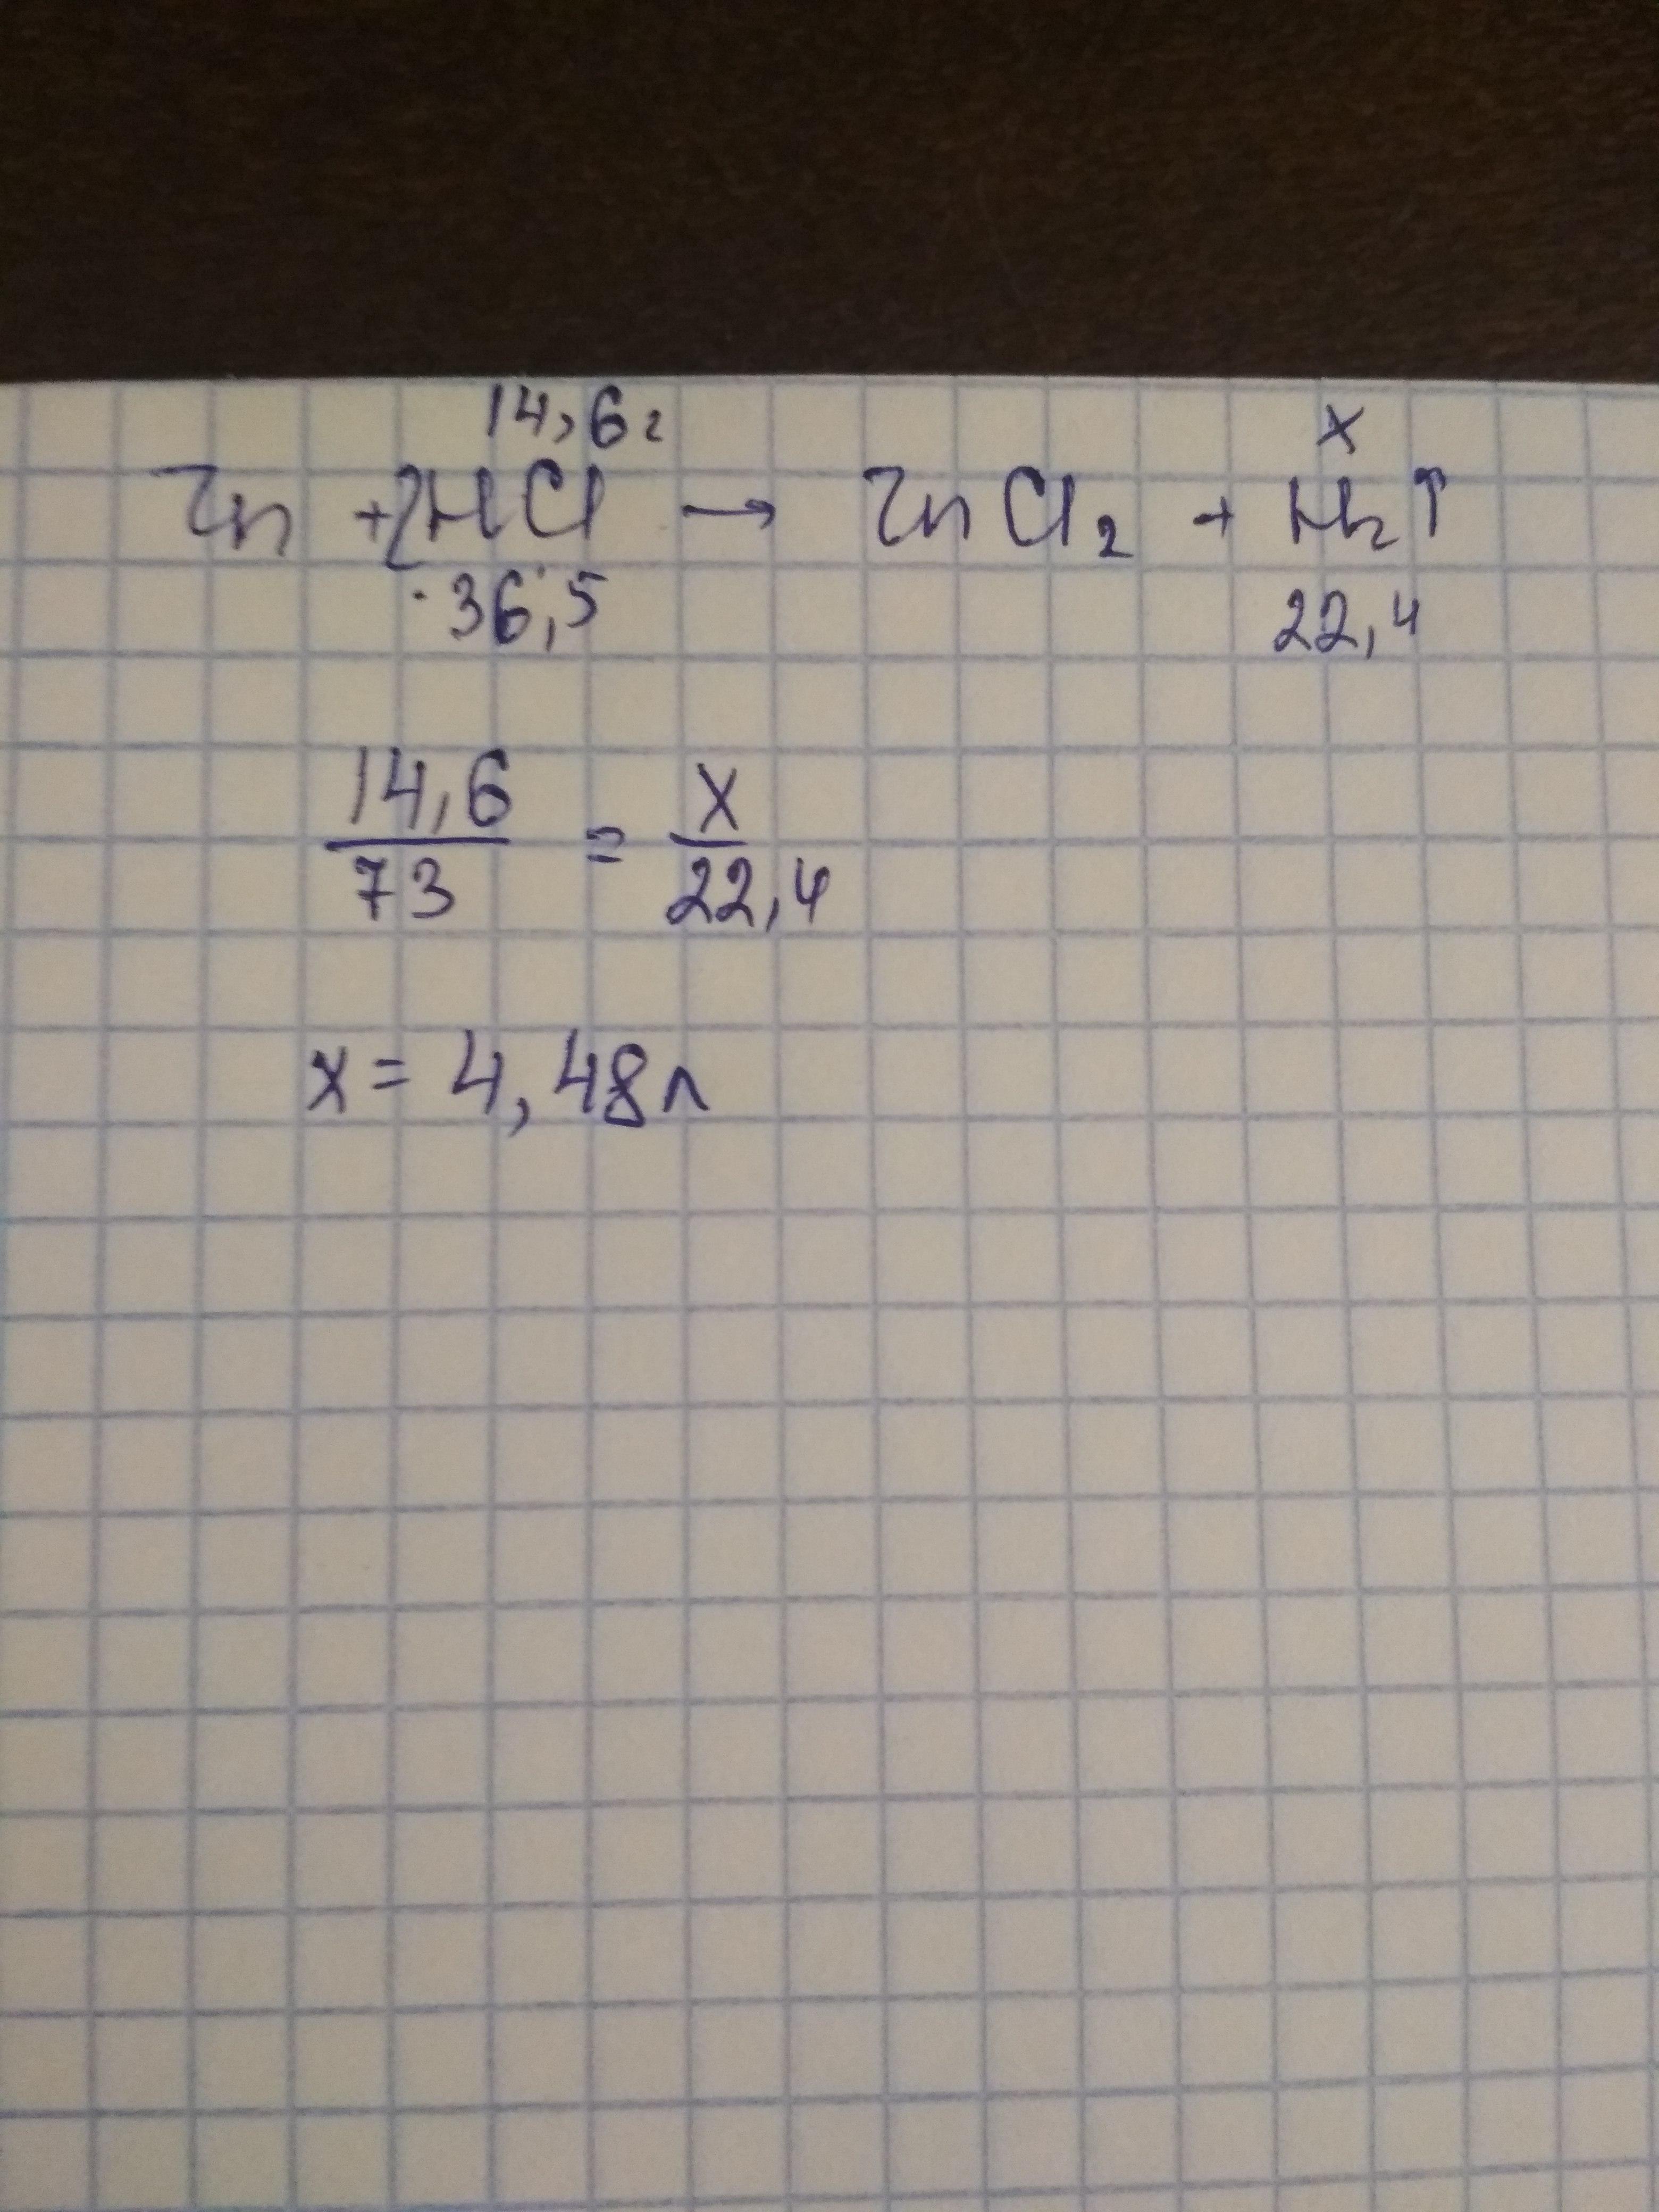 14,6г x
Zn + 2HCl → ZnCl₂ + H₂↑
·36,5 22,4
14,6/73 = x/22,4
x = 4,48л